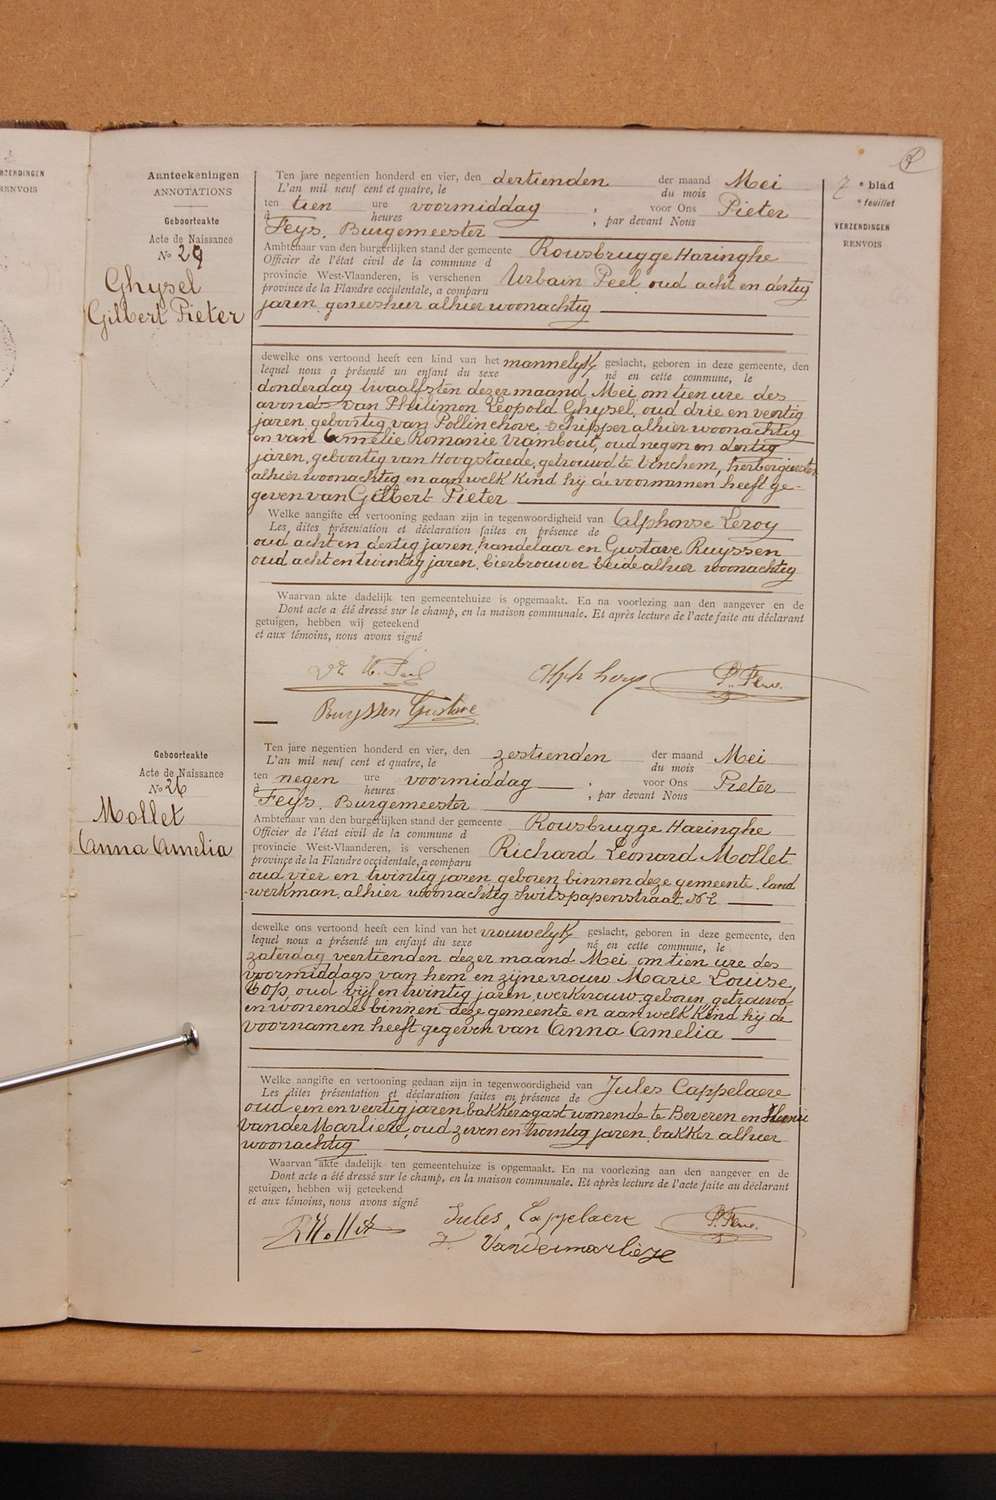 RZENDINGEN
RENVOIS
Aanteekeningen
ANNOTATIONS
Geboorteakte
Acte de Naissance
No 29
Ghysel
Gilbert Pieter
7 e blad
e feuillet
VERZENDINGEN
RENVOIS
Ten jare negentien honderd en vier, den dertienden der maand Mei
L'an mil neuf cent et quatre, le du mois
ten tien ure voormiddag ; voor Ons Pieter
à heures , par devant Nous
Feys, Burgemeester
Ambtenaar van den burgerlijken stand der gemeente Rousbrugge Haringhe
Officier de l'état civil de la commune d
provincie West-Vlaanderen, is verschenen Urbain Peel, oud acht en dertig
province de la Flandre occidentale, a comparu
jaren, geneesheer alhier woonachtig
dewelke ons vertoond heeft een kind van het mannelyk geslacht, geboren in deze gemeente, den
lequel nous a présenté un enfant du sexe né en cette commune, le
donderdag twaalfsten dezer maand Mei, om tien ure des
avonds van Philimon Leopold Ghysel, oud drie en veertig
jaren, geboortig van Pollinchove, schipper alhier woonachtig
en van Amelie Romanie Vrambout, oud negen en dertig
jaren, geboortig van Hoogstaede, getrouwd te Vinchem, herbergierster
alhier woonachtig en aan welk kind hij de voornamen heeft ge-
geven van Gilbert Pieter
Welke aangifte en vertooning gedaan zijn in tegenwoordigheid van Alphonse Leroy
Les dites présentation et déclaration faites en présence de
oud acht en dertig jaren, handelaar en Gustave Ruyssen
oud acht en twintig jaren, bierbrouwer beide alhier woonachtig
Waarvan akte dadelijk ten gemeentehuize is opgemaakt. En na voorlezing aan den aangever en de
Dont acte a été dressé sur le champ, en la maison communale. Et après lecture de l'acte faite au déclarant
getuigen, hebben wij geteekend
et aux témoins, nous avons signé
Dr U. Peel Alph Leroy P. Feys.
Ruyssen Gustave
Geboorteakte
Acte de Naissance
No 26
Mollet
Anna Amelia
Ten jare negentien honderd en vier, den zestienden der maand Mei
L'an mil neuf cent et quatre, le du mois
ten negen ure voormiddag ; voor Ons Pieter
à heures ; par devant Nous
Feys, Burgemeester
Ambtenaar van den burgerlijken stand der gemeente Rousbrugge Haringhe
Officier de l'état civil de la commune d
provincie West-Vlaanderen, is verschenen Richard Leonard Mollet
province de la Flandre occidentale, a comparu
oud vier en twintig jaren, geboren binnen deze gemeente, land
werkman, alhier woonachtig Switspapenstraat No 2
dewelke ons vertoond heeft een kind van het vrouwelyk geslacht, geboren in deze gemeente, den
lequel nous a présenté un enfant du sexe né en cette commune, le
zaterdag veertienden dezer maand Mei, om tien ure des
voormiddags van hem en zijne vrouw Marie Louise
Cop, oud vijf en twintig jaren, werkvrouw, geboren, getrouwd
en wonende binnen deze gemeente en aan welk kind hij de
voornamen heeft gegeven van Anna Amelia
Welke aangifte en vertooning gedaan zijn in tegenwoordigheid van Jules Cappelaere
Les dites présentation et déclaration faites en présence de
oud een en veertig jaren, bakkersgast wonende te Beveren en Henri
vander Marliere, oud zeven en twintig jaren, bakker alhier
woonachtig
Waarvan akte dadelijk ten gemeentehuize is opgemaakt. En na voorlezing aan den aangever en de
Dont acte a été dressé sur le champ, en la maison communale. Et après lecture de l'acte faite au déclarant
getuigen, hebben wij geteekend
et aux témoins, nous avons signé
R Mollet Jules Cappelaere P. Feys.
Vandermarlière